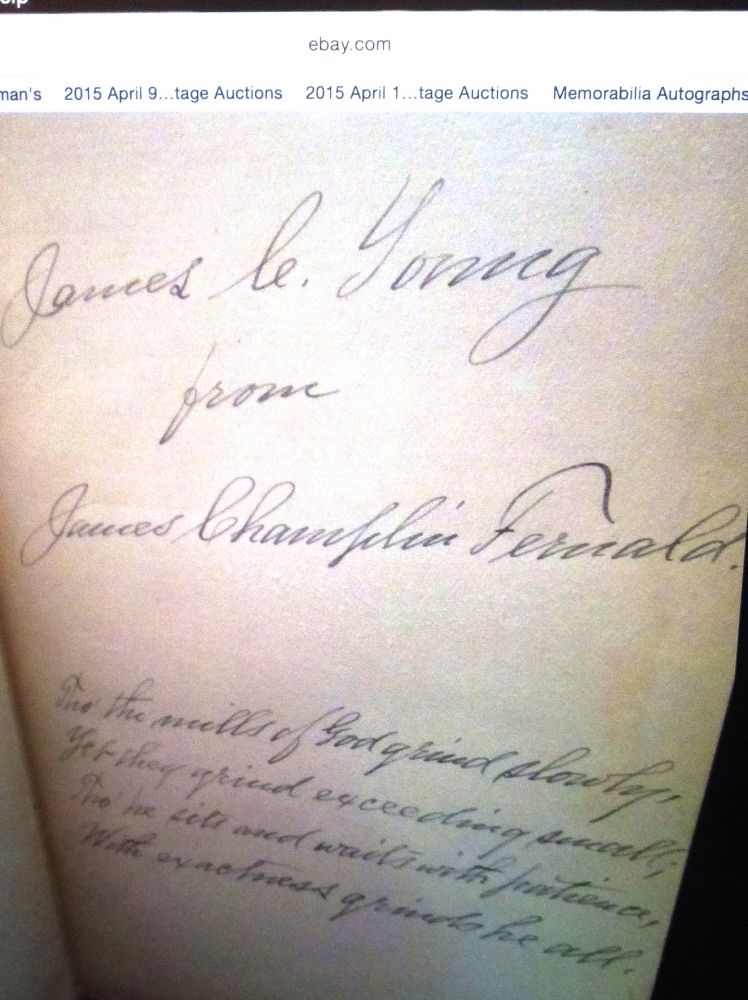 elp
ebay.com
man's 2015 April 9...tage Auctions 2015 April 1...tage Auctions Memorabilia Autographs
James C. Young
from
James Champlin Fernald.
Tho' the mills of God grind slowly,
Yet they grind exceeding small;
Tho' he sits and waits with patience,
With exactness grinds he all.